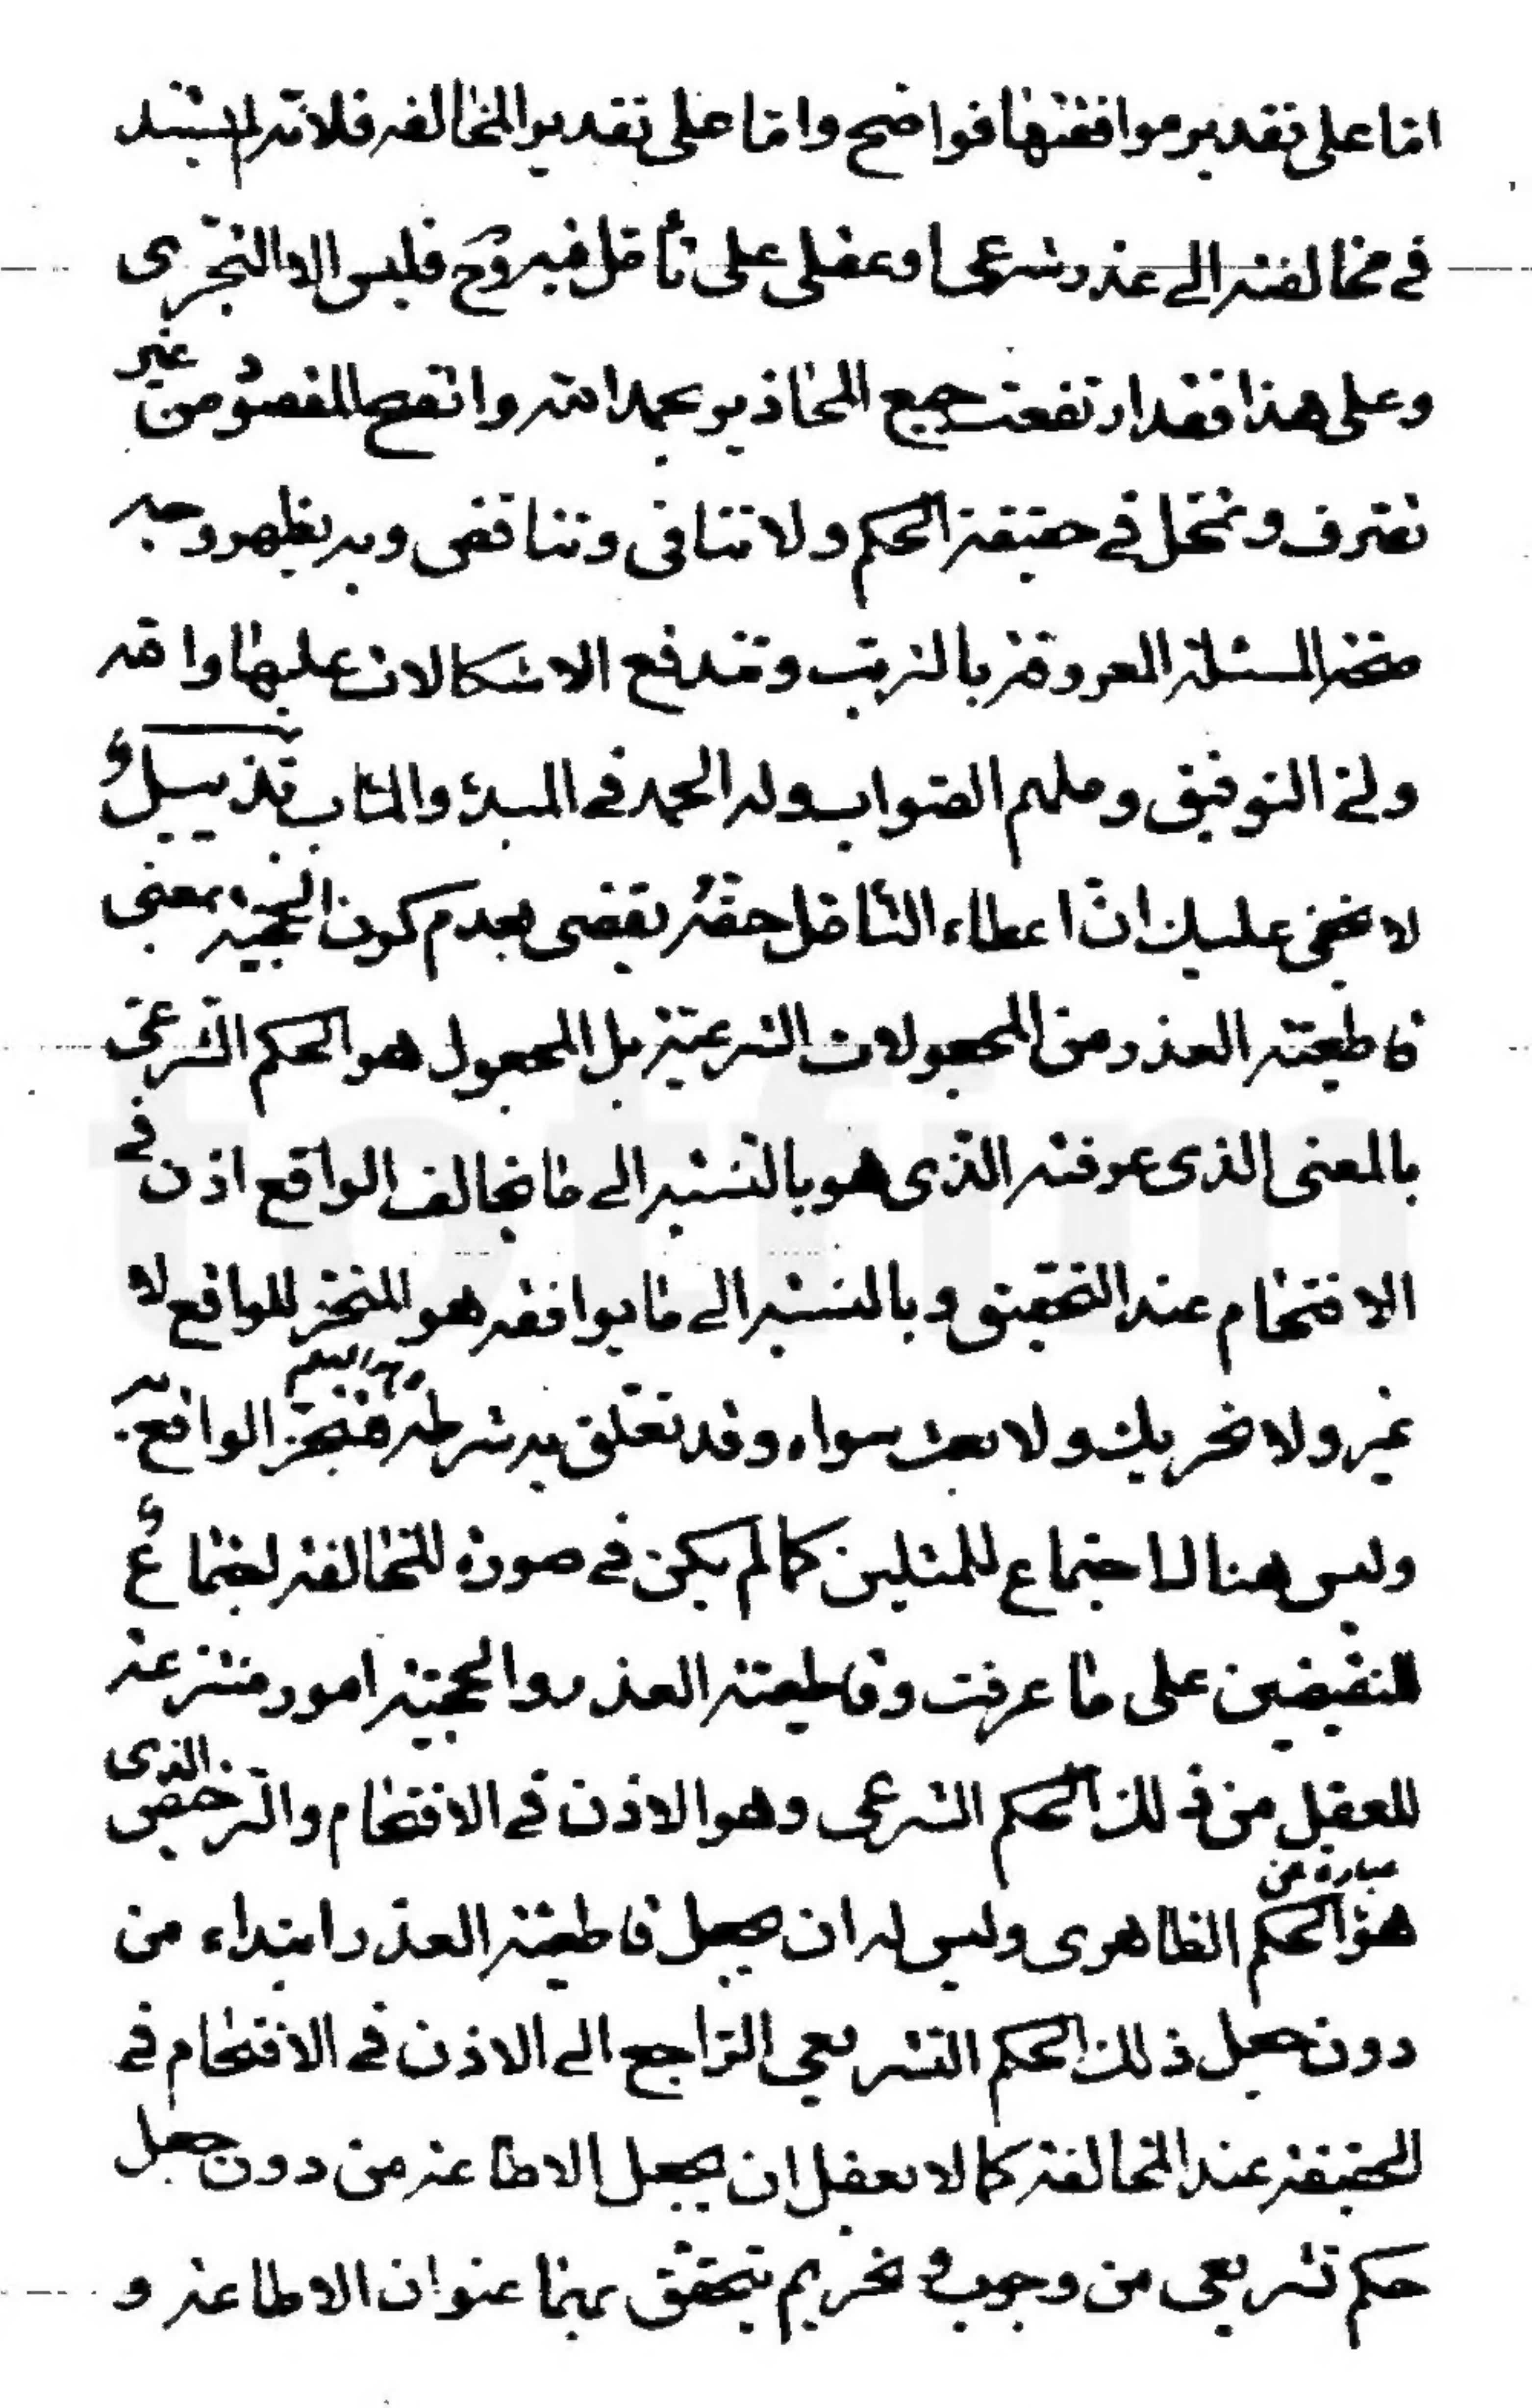 امّا على تقدير موافقتها فواضح وامّا على تقدير المخالفه فلانّه لم يستند
في مخالفته الى عذر شرعى او عقلى على تأمّل فيه وح فليس الا التجرّى
وعلى هذا فقد ارتفعت جميع المحاذير بحمد الله واتّضح المقصود من غير
تعسّف وتمحّل في حقيقة الحكم ولا تنافى وتناقض وبه يظهر وجه
صحّة المسئلة المعروفة بالترتب وتندفع الاشكالات عليها والله
ولىّ التوفيق وملهم الصّواب وله الحمد في المبدء والمئاب تذييلٌ
لا يخفى عليك انّ اعطاء التّأمّل حقّه يقضى بعدم كون الحجيّة بمعنى
قاطعيّة العذر من المجعولات الشرعيّة بل المجعول هو الحكم الشّرعىّ
بالمعنى الذى عرفته الّذى هو بالنّسبة الى ما يخالف الواقع اذن في
الاقتحام عند التّحقيق وبالنسبة الى ما يوافقه هو المنجّز للواقع لا
غير ولا تحريك ولا بعث سواء وقد تعلّق به شرطه منجّز الواقع به
وليس هناك اجتماع للمثلين كما لم يكن في صورة المخالفة اجتماعٌ
للنقيضين على ما عرفت وقاطعيّة العذر والحجيّة امور منتزعة
للعقل من ذلك الحكم الشرعى وهو الاذن في الاقتحام والتّرخيص الذى
هو عبارة عن الحكم الظاهرى وليس له ان يجعل قاطعيّة العذر ابتداء من
دون جعل ذلك الحكم التشريعى الرّاجع الى الاذن في الاقتحام في
الحقيقة عند المخالفة كما لا يعقل ان يجعل الاطاعة من دون جعل
حكم تشريعى من وجوب و تحريم يتحقّق بهما عنوان الاطاعة و